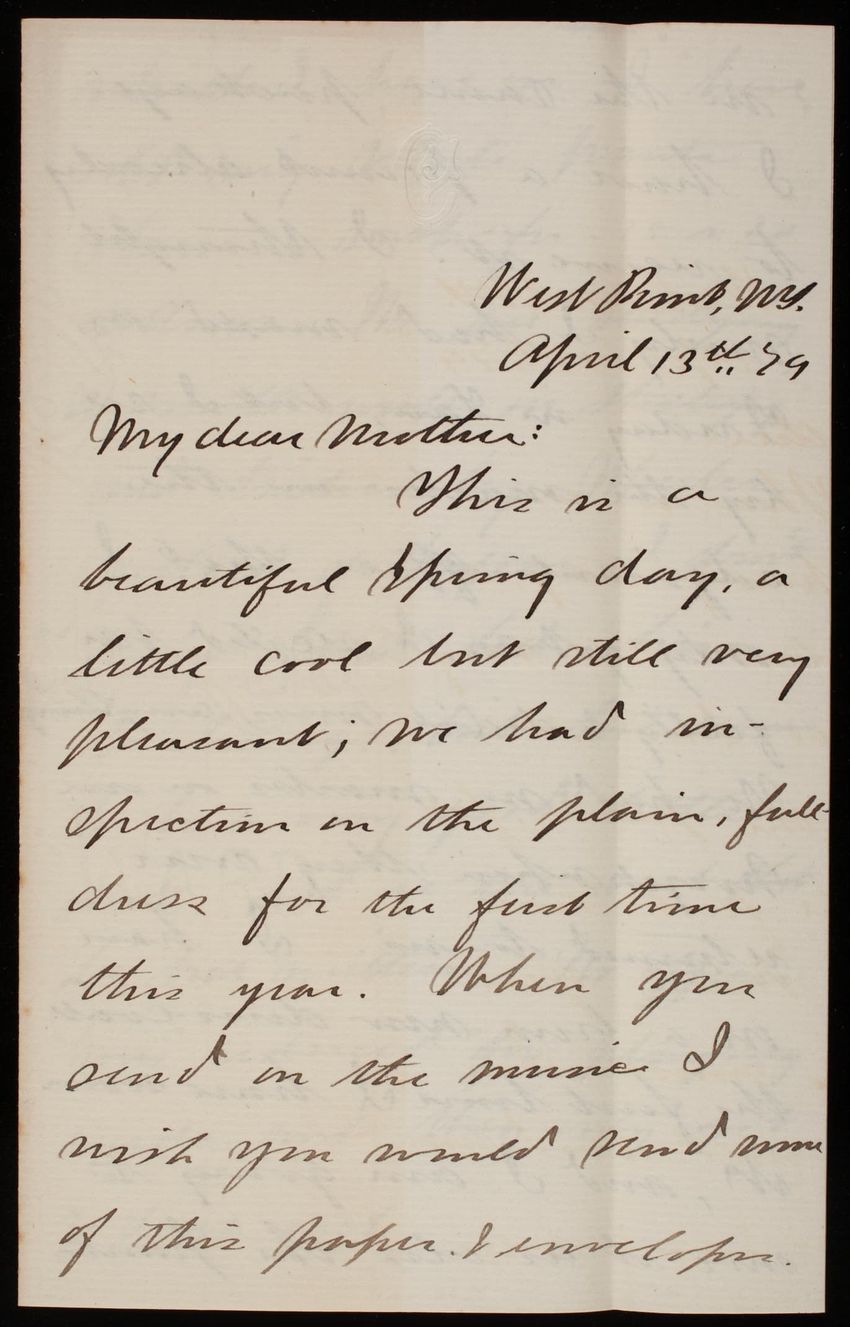 West Point, N.Y.
April 13th 79
My dear Mother:
This is a
beautiful Spring day, a
little cool but still very
pleasant; we had in-
spection on the plain, full-
dress for the first time
this year. When you
send on the music I
wish you would send some
of this paper & envelopes.